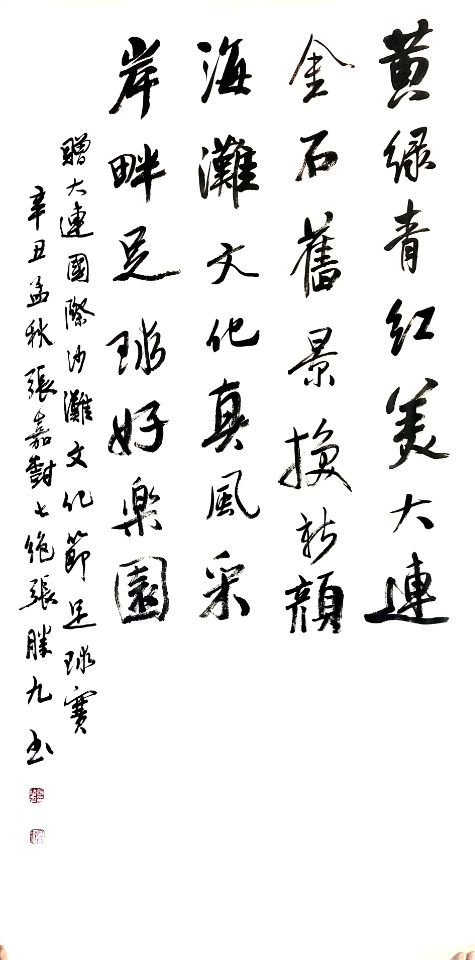 黄緑青红美大連
金石舊景換新顔
海灘文化真風采
岸畔足球好樂園
贈大連國際沙灘文化節足球賽
辛丑孟秋張嘉樹七绝張勝九书